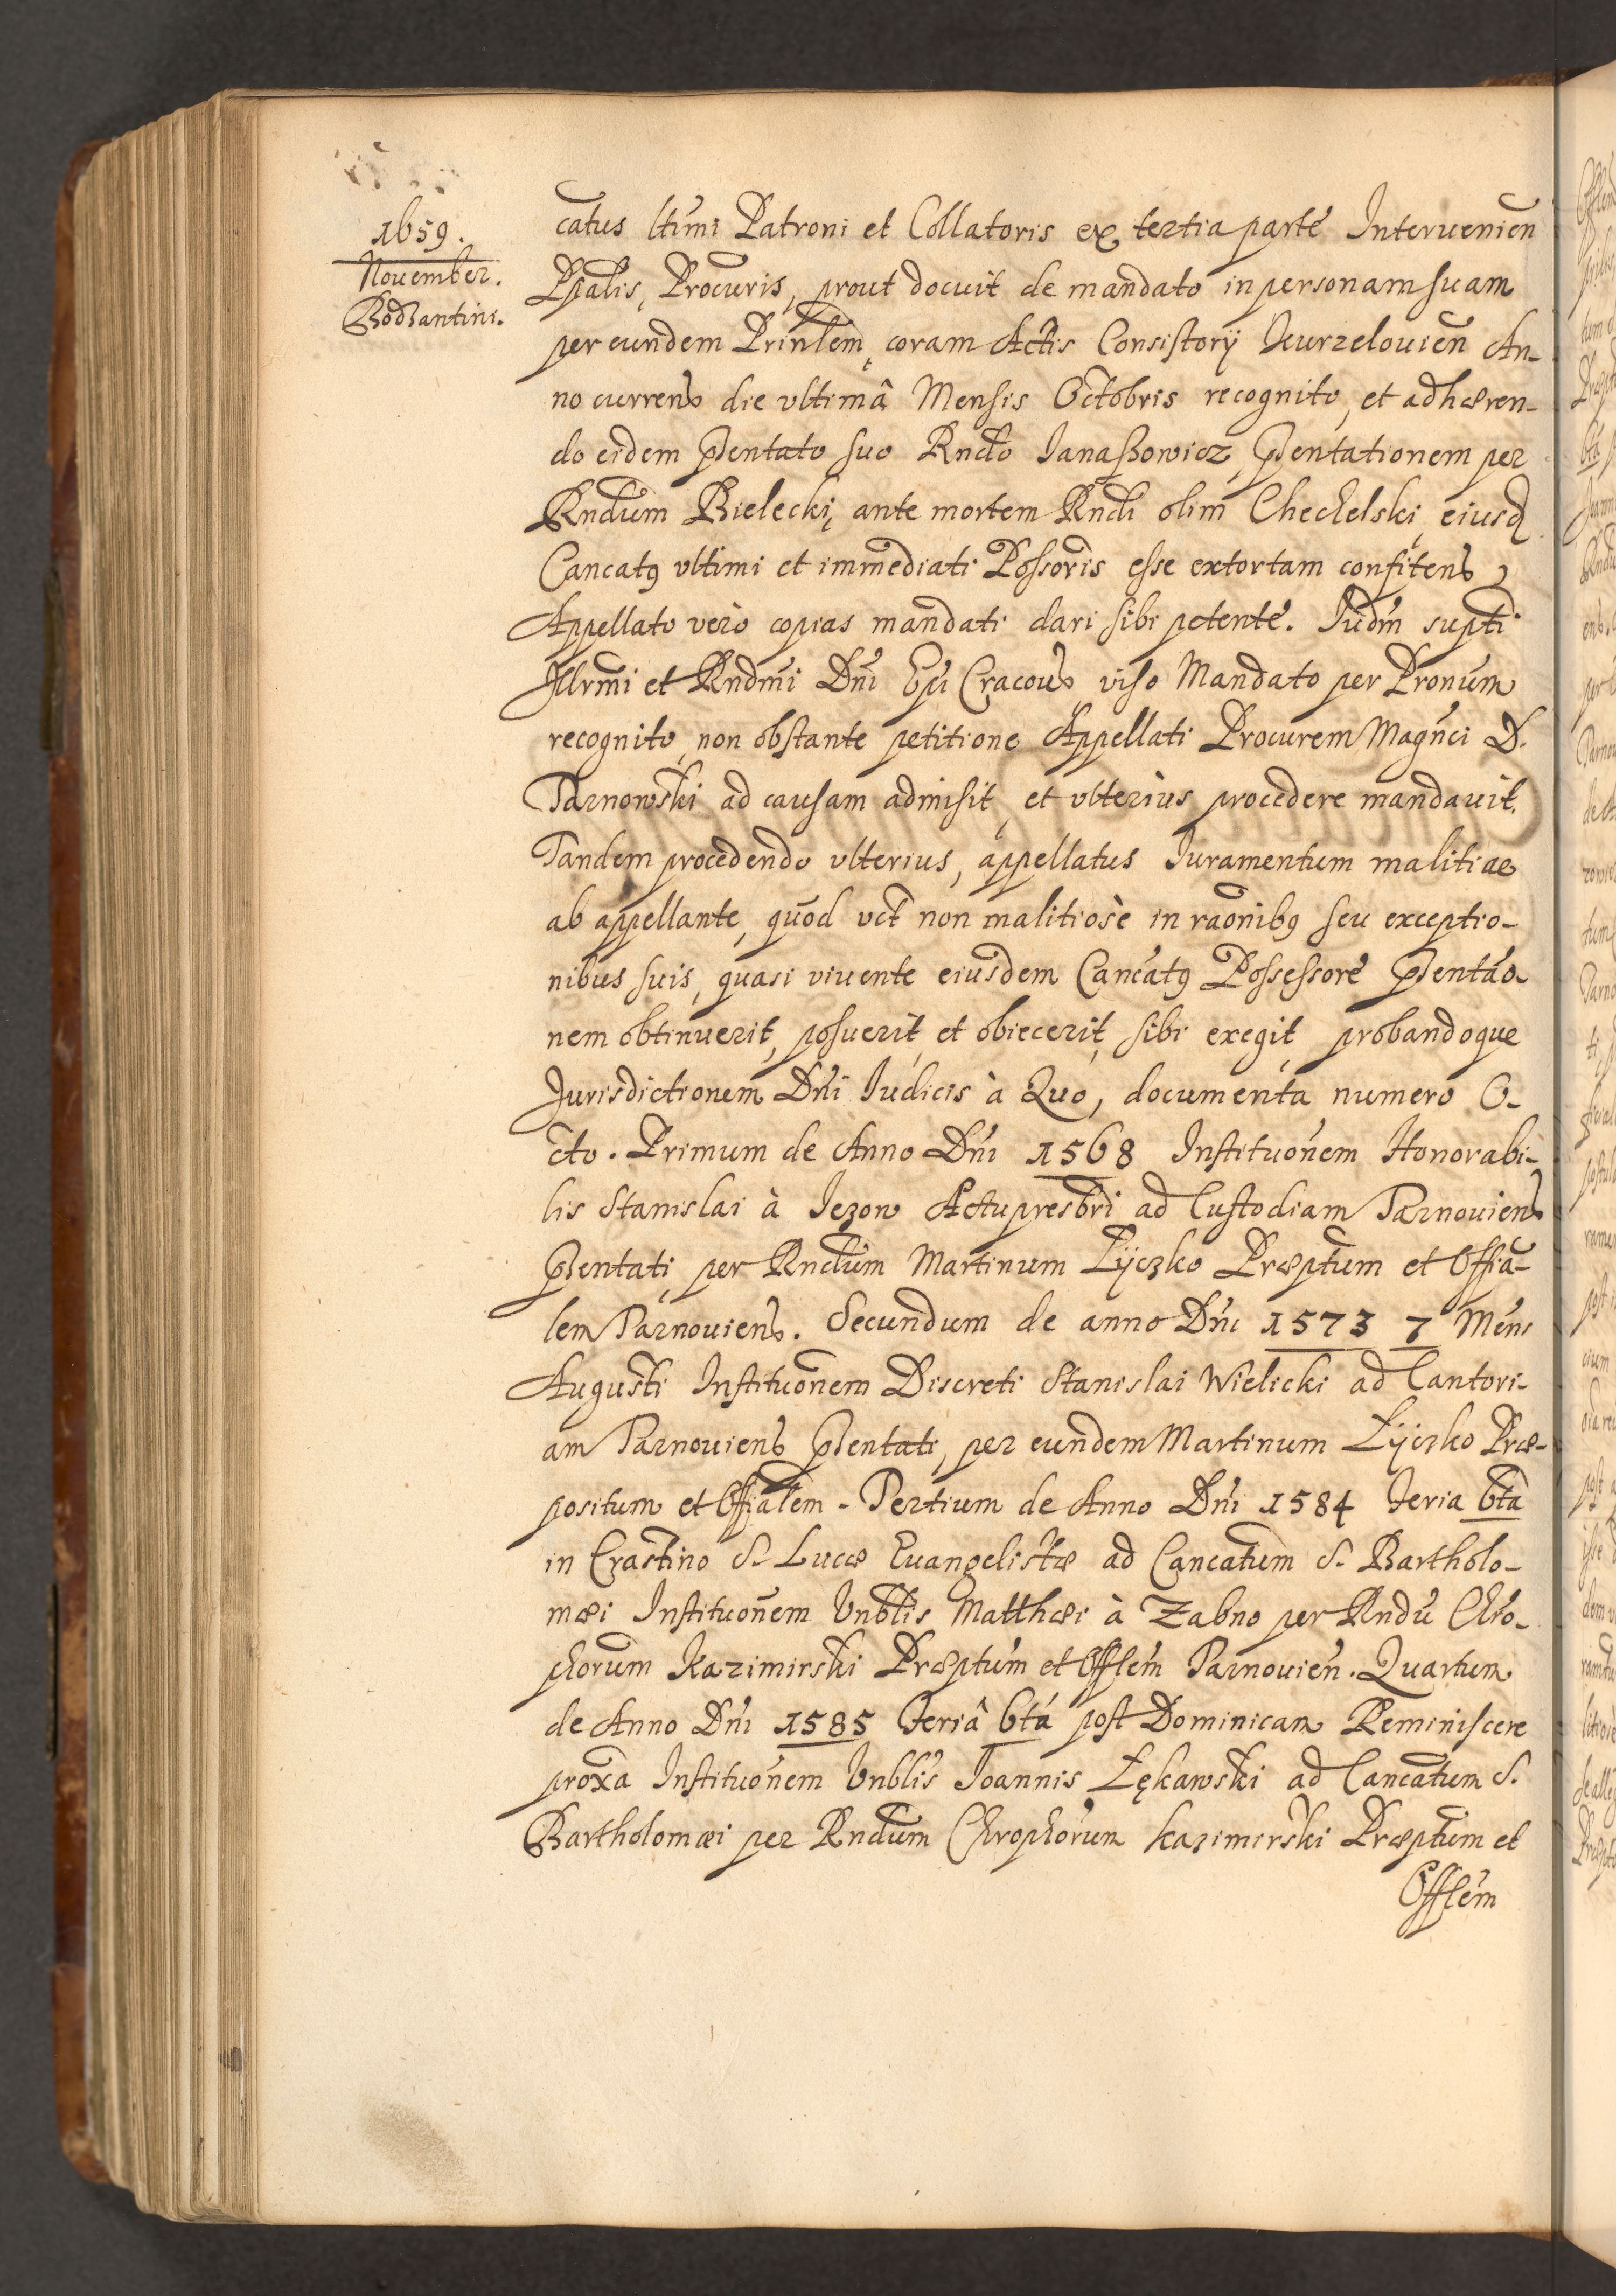 1659.
November.
Bodzantini.
catus ltimi Patroni et Collatoris ex tertia parte Intervenien
Ppalis, Procuris, prout docuit de mandato in personam suam
per eundem Prinlem, coram Actis Consistorÿ Kurzelouien An-
no currens die vltimâ Mensis Octobris recognito, et adhæren-
do eidem Pntato suo Rndo Janaszowicz, Pntationem per
Rndum Bielecki, ante mortem Rndi olim Chechelski, eiusd
Cancatq vltimi et immediati Possoris esse extortam confitens,
Appellato verò copias mandati dari sibi petente. Iudm supti
Jllrmi et Rndmi Dni Epi Cracous, viso Mandato per Pronum
recognito, non obstante petitione Appellati Procurem Magnci D.
Tarnowski ad causam admisit, et vlterius procedere mandauit.
Tandem procedendo vlterius, appellatus Iuramentum malitiae
ab appellante, quod vct non malitiosè in raonibq seu exceptio-
nibus suis, quasi viuente eiusdem Cancatq Possessore Pntao
nem obtinuerit, posuerit et obiecerit, sibi exegit, probandoque
Jurisdictionem Dni Iudicis à Quo, documenta numero O-
cto. Primum de Anno Dni 1568 Instituonem Honorabi-
lis Stanislai à Iezow Actu presbri ad Custodiam Tarnouiens
Pntati, per Rndum Martinum Łÿczko Præptum et Offia-
lem Tarnouiens. Secundum de anno Dni 1573 7 Mens
Augusti Instituonem Discreti Stanislai Wielicki ad Cantori-
am Tarnouiens Pntati, per eundem Martinum Łÿczko Præ-
positum et Offialem. Tertium de Anno Dni 1584 Feria 6ta
in Crastino S. Lucæ Euangelistæ ad Cancatum S. Bartholo-
mæi Instituonem Vnblis Matthæi à Zabno per Rndu Chro-
phorum Kazimirski Præptum et Offlem Tarnouien. Quartum
de Anno Dni 1585 Feriâ 6ta post Dominicam Reminiscere
proxa Instituonem Vnblis Joannis Łękawski ad Cancatum S.
Bartholomæi per Rndum Chrophorum Kazimirski Præptum et
Offlem